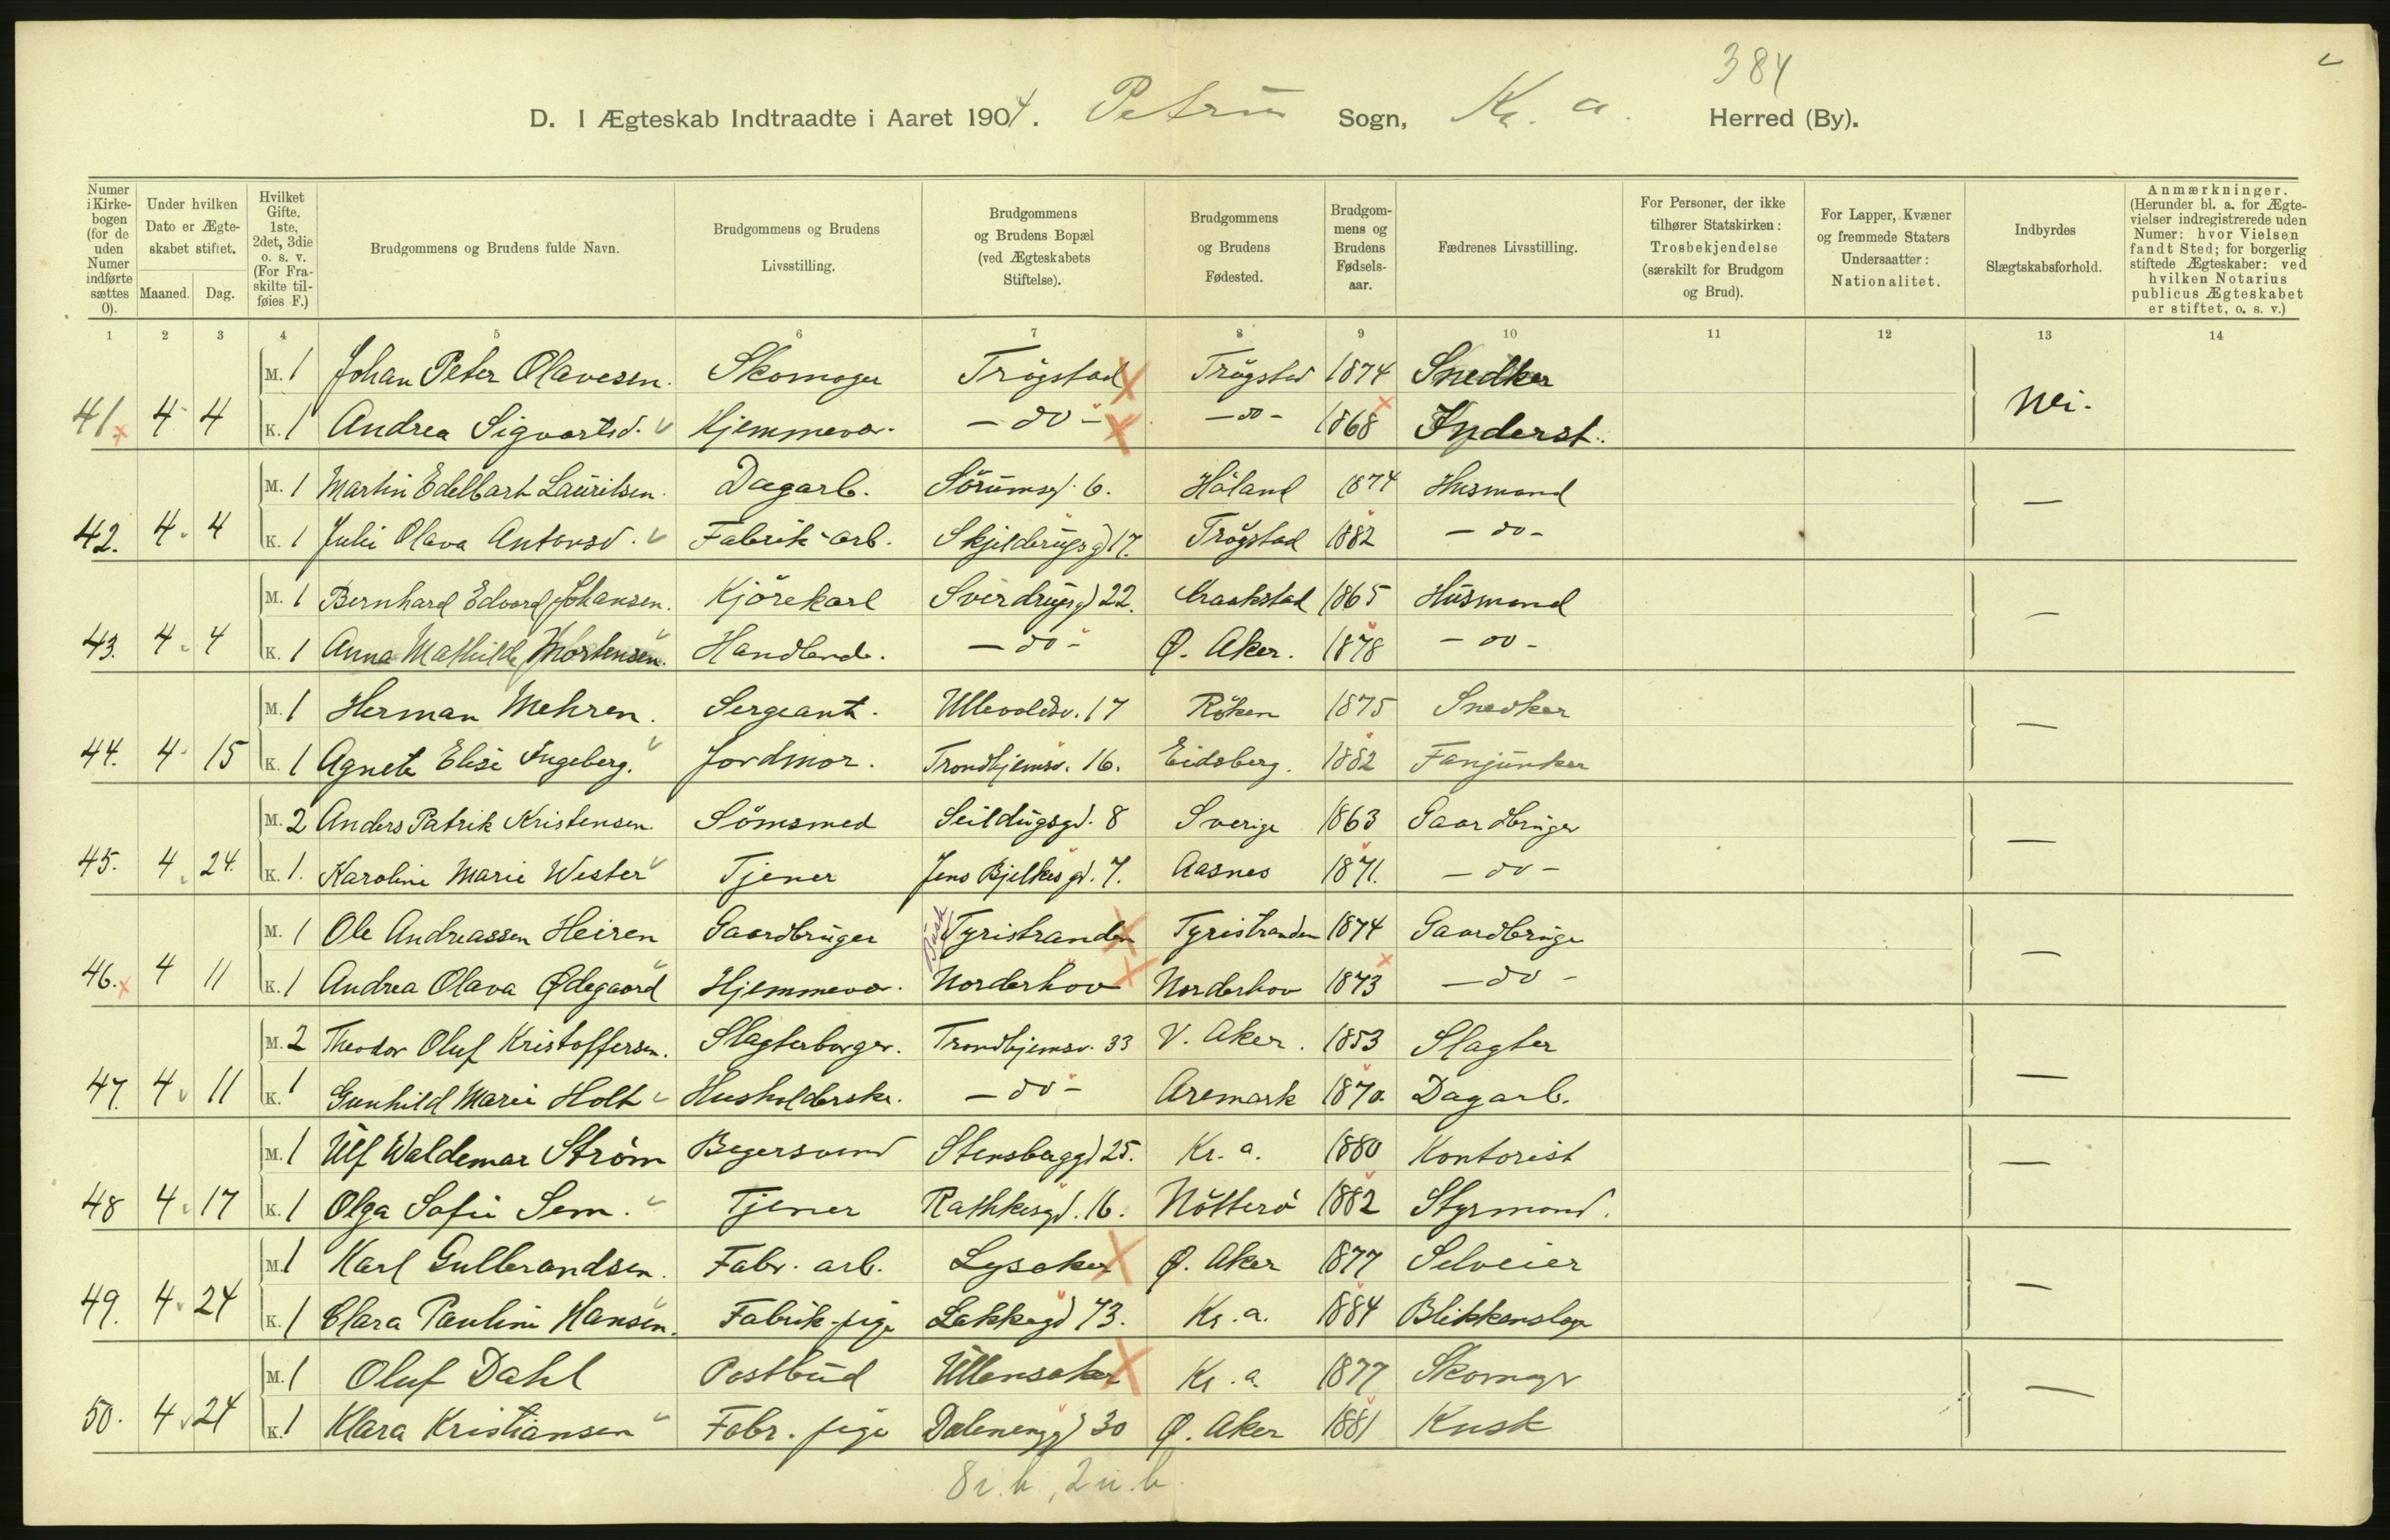 384
D. I Ægteskab Indtraadte i Aaret 1904. Petrus Sogn, Kr. a. Herred (By).
Numer i Kirkebogen (for de uden Numer indførte sættes 0).
Under hvilken Dato er Ægteskabet stiftet.
Maaned. Dag.
Hvilket Gifte. 1ste, 2det, 3die o. s. v. (For Fraskilte tilføies F.)
Brudgommens og Brudens fulde Navn.
Brudgommens og Brudens Livsstilling.
Brudgommens og Brudens Bopæl (ved Ægteskabets Stiftelse).
Brudgommens og Brudens Fødested.
Brudgommens og Brudens Fødselsaar.
Fædrenes Livsstilling.
For Personer, der ikke tilhører Statskirken: Trosbekjendelse (særskilt for Brudgom og Brud).
For Lapper, Kvæner og fremmede Staters Undersaatter: Nationalitet.
Indbyrdes Slægtskabsforhold.
Anmærkninger. (Herunder bl. a. for Ægtevielser indregistrerede uden Numer: hvor Vielsen fandt Sted; for borgerlig stiftede Ægteskaber: ved hvilken Notarius publicus Ægteskabet er stiftet, o. s. v.)
1 2 3 4 5 6 7 8 9 10 11 12 13 14
M. 1 Johan Peter Olavesen. Skomager Trögstad Trögstad 1874 Snedker
41. 4 4 K. 1 Andrea Sigvartsd. Hjemmevær. - do - - do - 1868 Inderst. Nei.
M. 1 Martin Edelbart Lauritsen. Dagarb. Sörumsg. 6. Höland 1874 Husmand
42. 4 4 K. 1 Julie Olava Antonsd. Fabrik-arb. Skjeldrupsgd 17. Trögstad 1882 - do - —
M. 1 Bernhard Edvard Johansen. Kjörekarl Sverdrupsgd 22. Kraakstad 1865 Husmand
43. 4 4 K. 1 Anna Mathilde Mortensen. Handlende. - do - Ø. Aker. 1878 - do - —
M. 1 Herman Mehren. Sergeant. Ullevoldsv. 17 Röken 1875 Snedker
44. 4 15 K. 1 Agnete Elise Ingeberg. Jordmor. Trondhjemsv. 16. Eidsberg. 1882 Fanjunker —
M. 2 Anders Patrik Kristensen. Sömsmed Seildugsgd. 8 Sverige 1863 Gaardbruger
45. 4 24. K. 1. Karoline Marie Wester Tjener Jens Bjelkesgd. 7. Aasnes 1871. - do - —
M. 1 Ole Andreassen Heiren Gaardbruger Tyristranden Tyristranden 1874 Gaardbruge
46. 4 11 K. 1 Andrea Olava Ødegaard Hjemmevær. Norderhov Norderhov 1873 - do - —
M. 2 Theodor Oluf Kristoffersen. Slagterborger. Trondhjemsv. 33 V. Aker. 1853 Slagter
47. 4 11 K. 1 Gunhild Marie Holt Husholderske. - do - Aremark 1870. Dagarb. —
M. 1 Ulf Waldemar Ström Bagersvend Stensberggd 25. Kr. a. 1880 Kontorist
48 4 17 K. 1 Olga Sofie Sem. Tjener Rathkesgd. 16. Nötterö 1882 Styrmand. —
M. 1 Karl Gulbrandsen. Fabr. arb. Lysaker Ø. Aker 1877 Selveier
49. 4 24 K. 1 Clara Pauline Hansen. Fabrik-pige Lakkegd 73. Kr. a. 1884 Blikkenslag. —
M. 1 Oluf Dahl Postbud Ullensaker Kr. a. 1877 Skomagr
50. 4 24 K. 1 Klara Kristiansen Fabr. pige Dælenenggd 30 Ø. Aker 1881 Kusk —
8 i. b, 2 u. b.